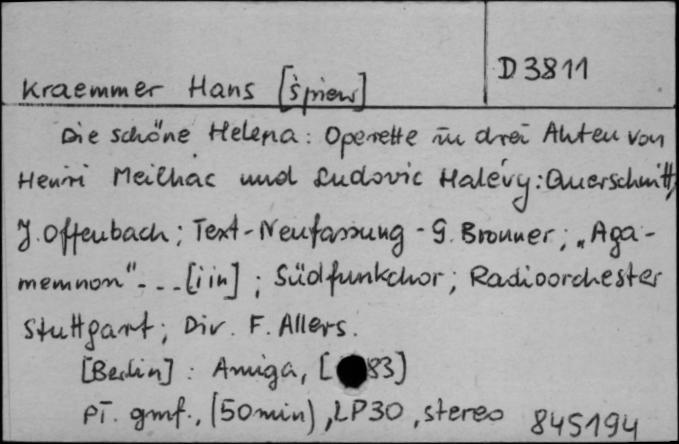 D 3811
Kraemmer Hans [śpiew]
Die schöne Helena: Operette in drei Akten von
Henri Meilhac und Ludovic Halévy: Querschnitt,
J. Offenbach; Text-Neufassung - G. Bronner; „Aga-
memnon"--- [i in]; Südfunkchor; Radioorchester
Stuttgart; Dir. F. Allers.
[Berlin]: Amiga, [83]
Pł. gmf., (50 min), LP30, stereo 845194